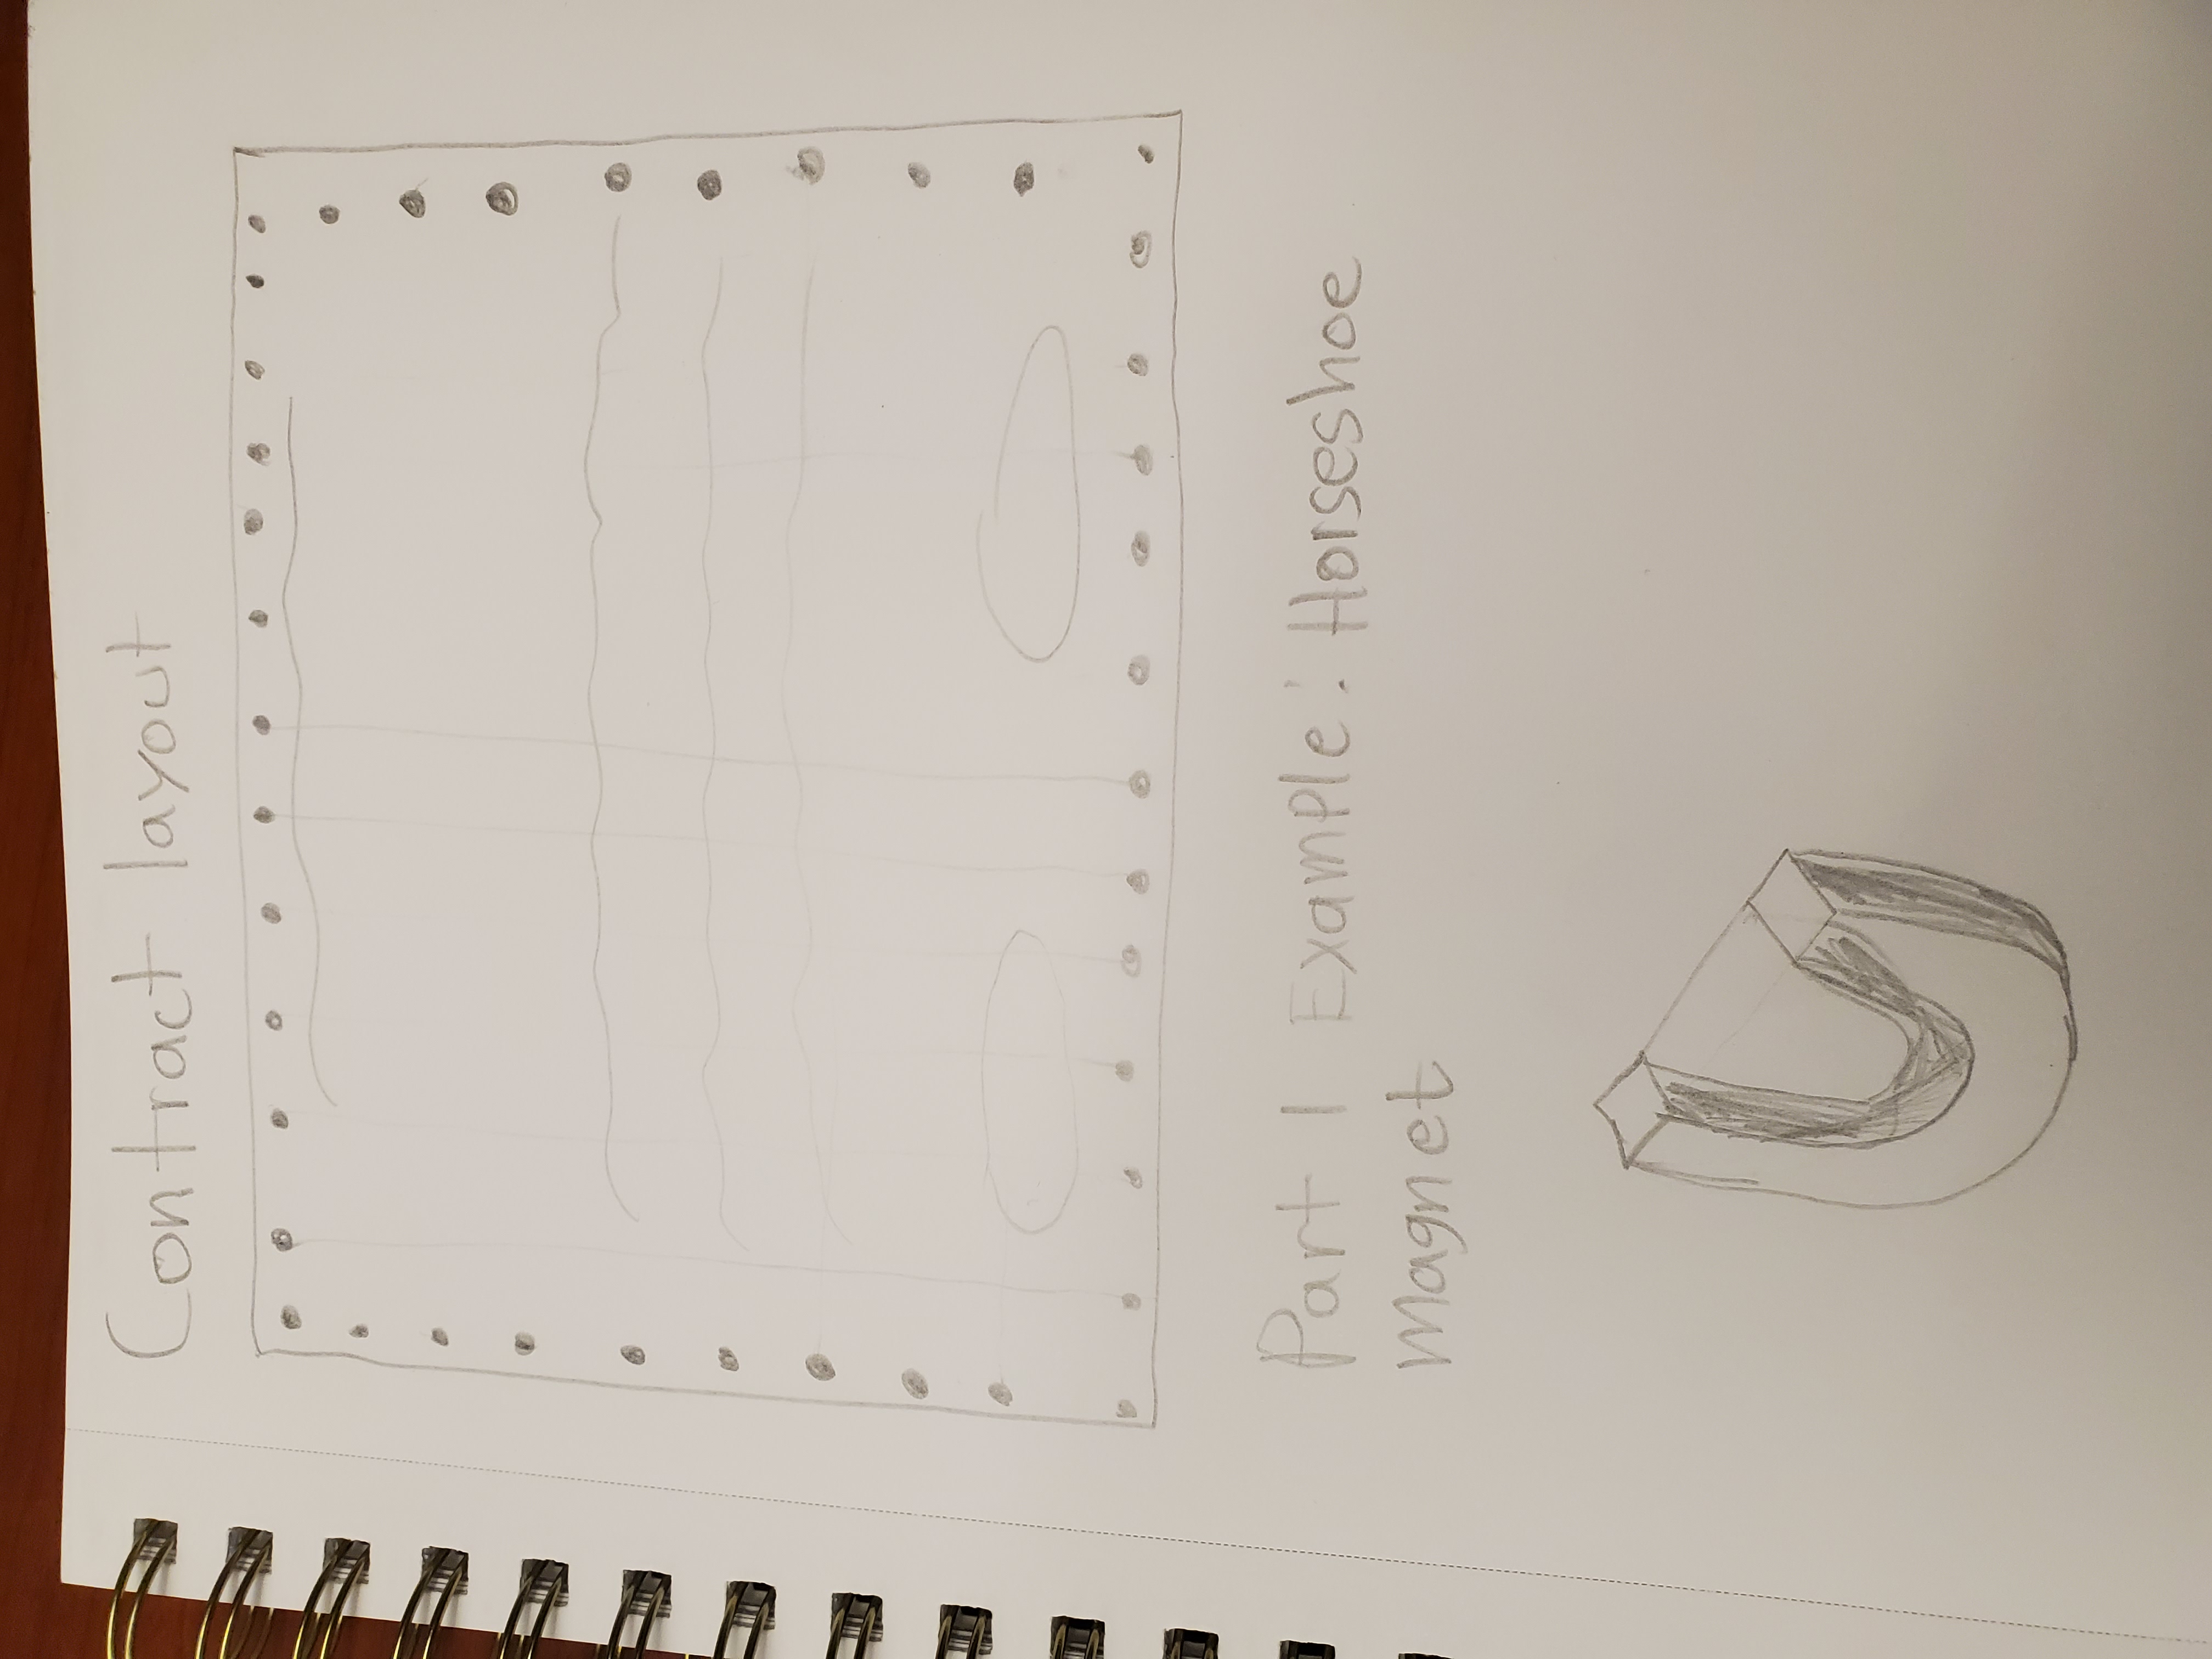 Contract layout
Part 1 Example: Horseshoe
Magnet